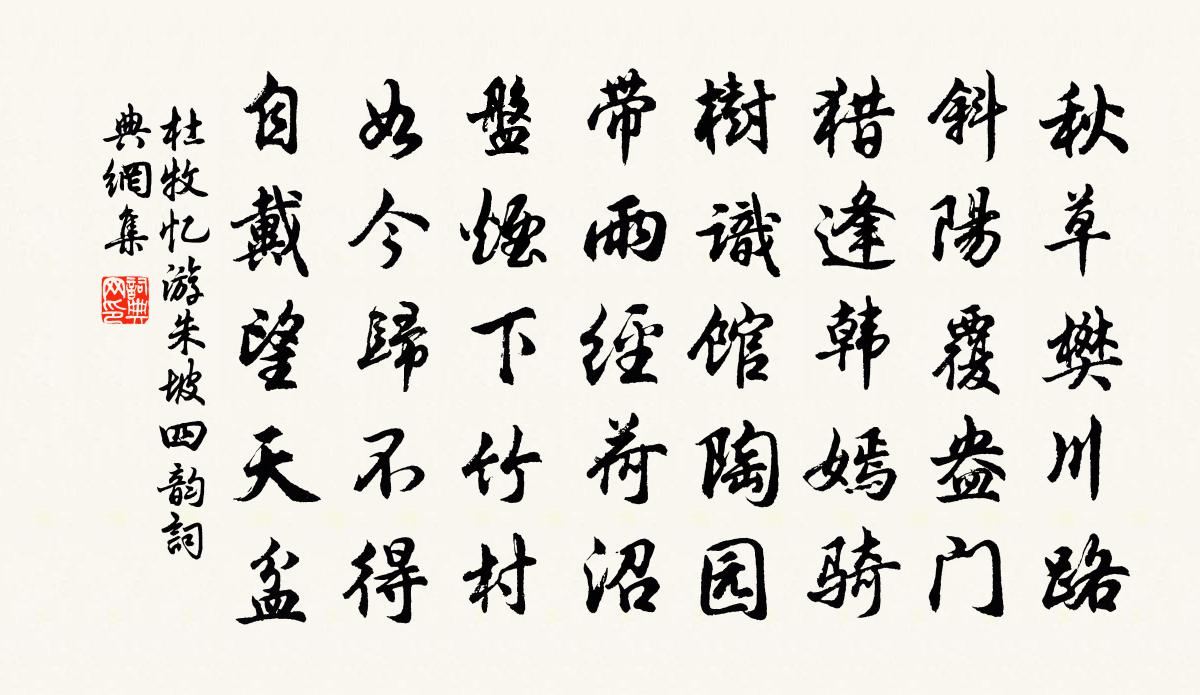 秋草樊川路
斜陽覆盎门
猎逢韩嫣骑
樹識馆陶园
带雨經荷沼
盤煙下竹村
如今歸不得
自戴望天盆
杜牧忆游朱坡四韵詞
典網集
詞典
网印